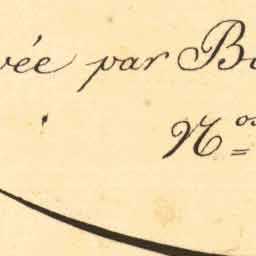 vée par B
N.os